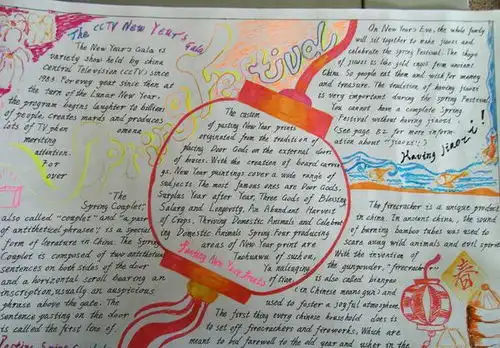 The CCTV New Year's Gala
The New Year's Gala is
variety show held by china
Central Television (CCTV) since
1983. For every year since then at
the turn of the Lunar New Year,
the program begins laughter to billions
of people, creates words and produces
lots of TV phen omena
meriting
attention.
For
over
Spring Festival
On New Year's Eve, the whole family
will sit together to make jiaozi and
celebrate the spring Festival. The shape
of jiaozi is like gold ingot from ancient
China. So people eat them and wish for money
and treasure. The tradition of having jiaozi
is very important during the spring Festival.
You cannot have a complete Spring
Festival without having jiaozi.
(See page 82 for more inform
ation about "jiaozi!)
Having jiaozi!
The custom
of pasting New Year prints
originated from the tradition of
placing Door Gods on the external doors
of houses. With the creation of board carvin
gs, New Year paintings cover a wide range of
subjects. The most famous ones are Door Gods,
Surplus Year after Year, Three Gods of Blessing
Salary and Longevity, An Abundant Harvest
of Crops, Thriving Domestic Animals and Celebrat
ing Domestic Animals Spring Four producing
areas of New Year print are
Taohuawu of suzhou,
Pasting New Year Prints
"The
Spring Couplet",
also called "couplet" and "a pair
of antithetical phrases", is a special
form of literature in China. The Spring
Couplet is composed of two antithetical
sentences on both sides of the door
and a horizontal scroll bearing an
inscription, usually an auspicious
phrase above the gate. The
sentence pasting on the door
is called the first line of
The firecracker is a unique product
in china. In ancient china, the sound
of burning bamboo tubes was used to
scare away wild animals and evil spirit
With the invention of
the gunpowder, "firecracker
is also called bianpao
(in Chinese means gun) and
used to foster a joyful atmosphere
The first thing every chinese household does is
to set off firecrackers and fireworks, Which are
meant to bid farewell to the old year and usher in the
春